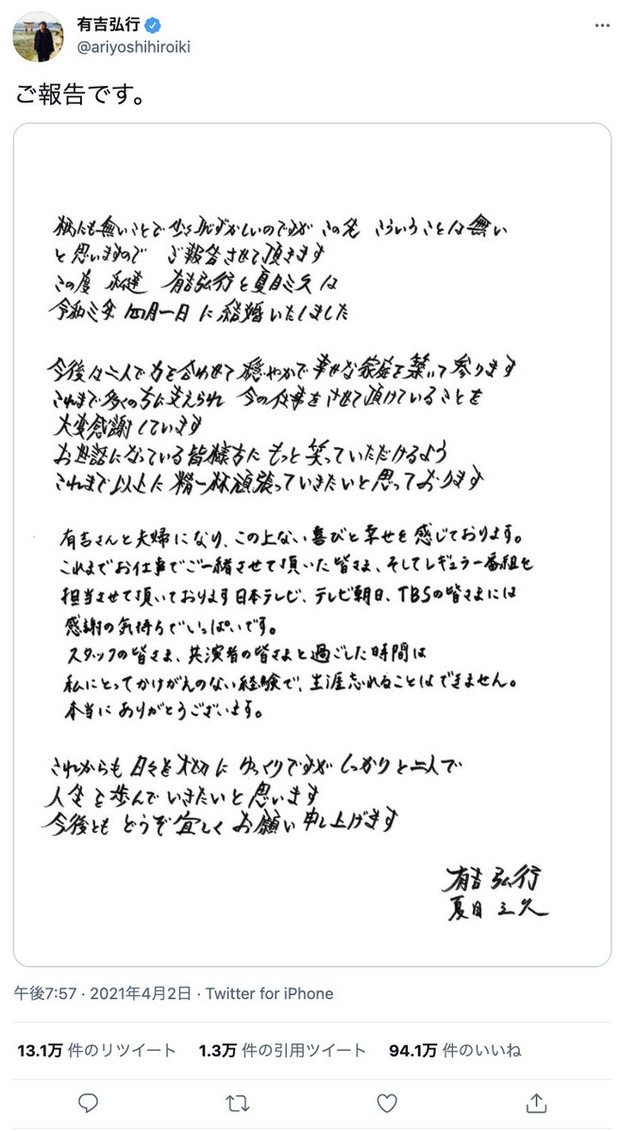 有吉弘行
@ariyoshihiroiki
ご報告です。
柄にも無いことで少々恥ずかしいのですが この先 こういうことは無い
と思いますので ご報告させて頂きます
この度 私達 有吉弘行と夏目三久は
令和三年 四月一日 に結婚いたしました
今後は二人で力を合わせて 穏やかで幸せな家庭を築いて参ります
これまで多くの方に支えられ 今の仕事をさせて頂けていることを
大変感謝しています
お世話になっている皆様方に もっと笑っていただけるよう
これまで以上に 精一杯頑張っていきたいと思っております
有吉さんと夫婦になり、この上ない喜びと幸せを感じております。
これまでお仕事でご一緒させて頂いた皆さま、そしてレギュラー番組を
担当させて頂いております日本テレビ、テレビ朝日、TBSの皆さまには
感謝の気持ちでいっぱいです。
スタッフの皆さま、共演者の皆さまと過ごした時間は
私にとってかけがえのない経験で、生涯忘れることはできません。
本当にありがとうございます。
これからも 日々を大切に ゆっくりですが しっかりと二人で
人生を歩んでいきたいと思います
今後とも どうぞ宜しく お願い申し上げます
有吉弘行
夏目三久
午後7:57 · 2021年4月2日 · Twitter for iPhone
13.1万 件のリツイート 1.3万 件の引用ツイート 94.1万 件のいいね